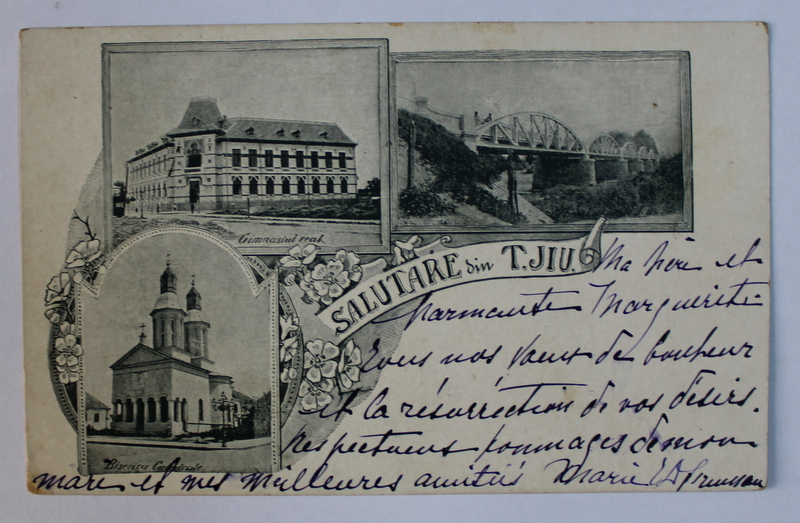 Gimnasiul real.
SALUTARE din T.JIU.
Biserica Catedrala
Ma chère et
charmante Marguerite
Tous nos vœux de bonheur
et la résurrection de vos désirs.
Respectueux hommages de mon
mari et mes meilleures amitiés Marie